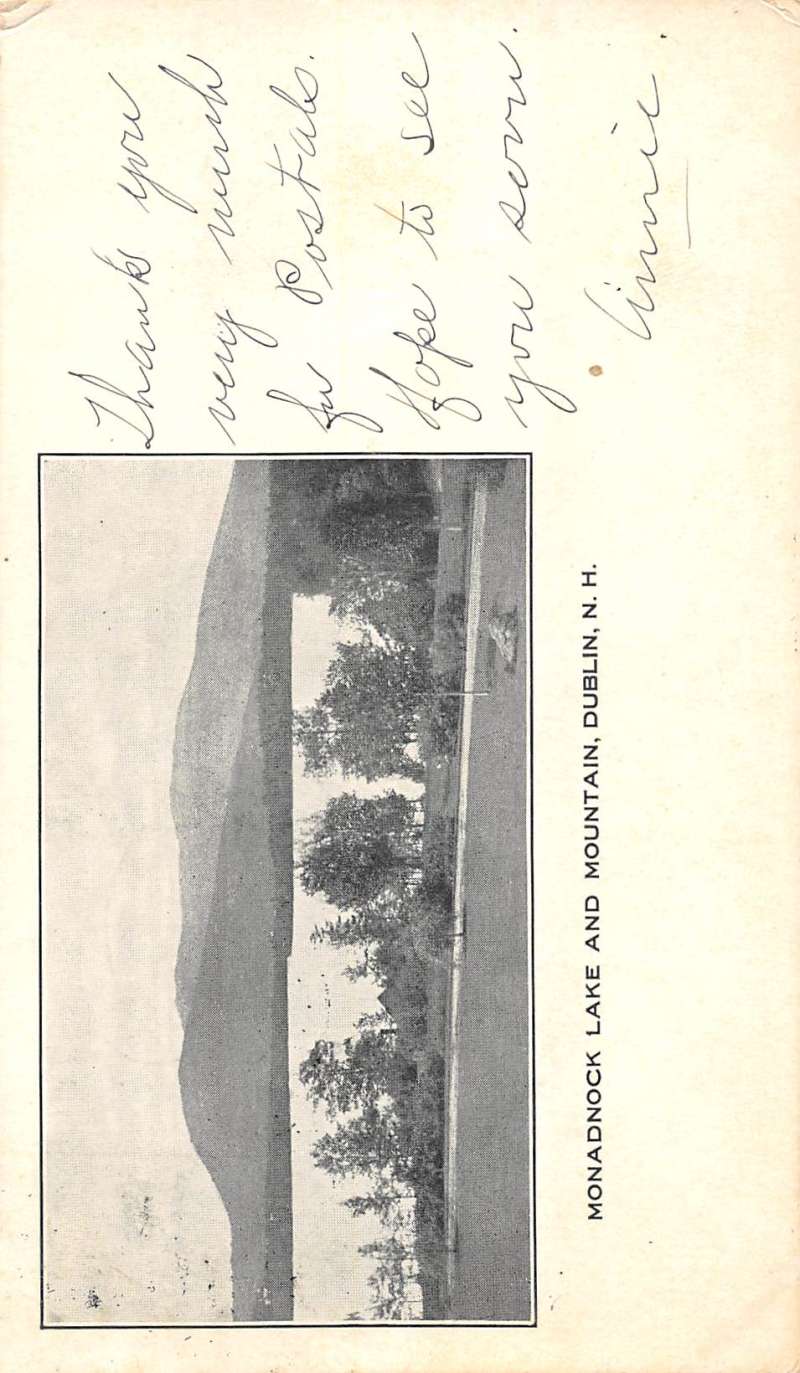 Thanks you
very much
for Postals.
Hope to see
you soon.
Annie.
MONADNOCK LAKE AND MOUNTAIN, DUBLIN, N. H.